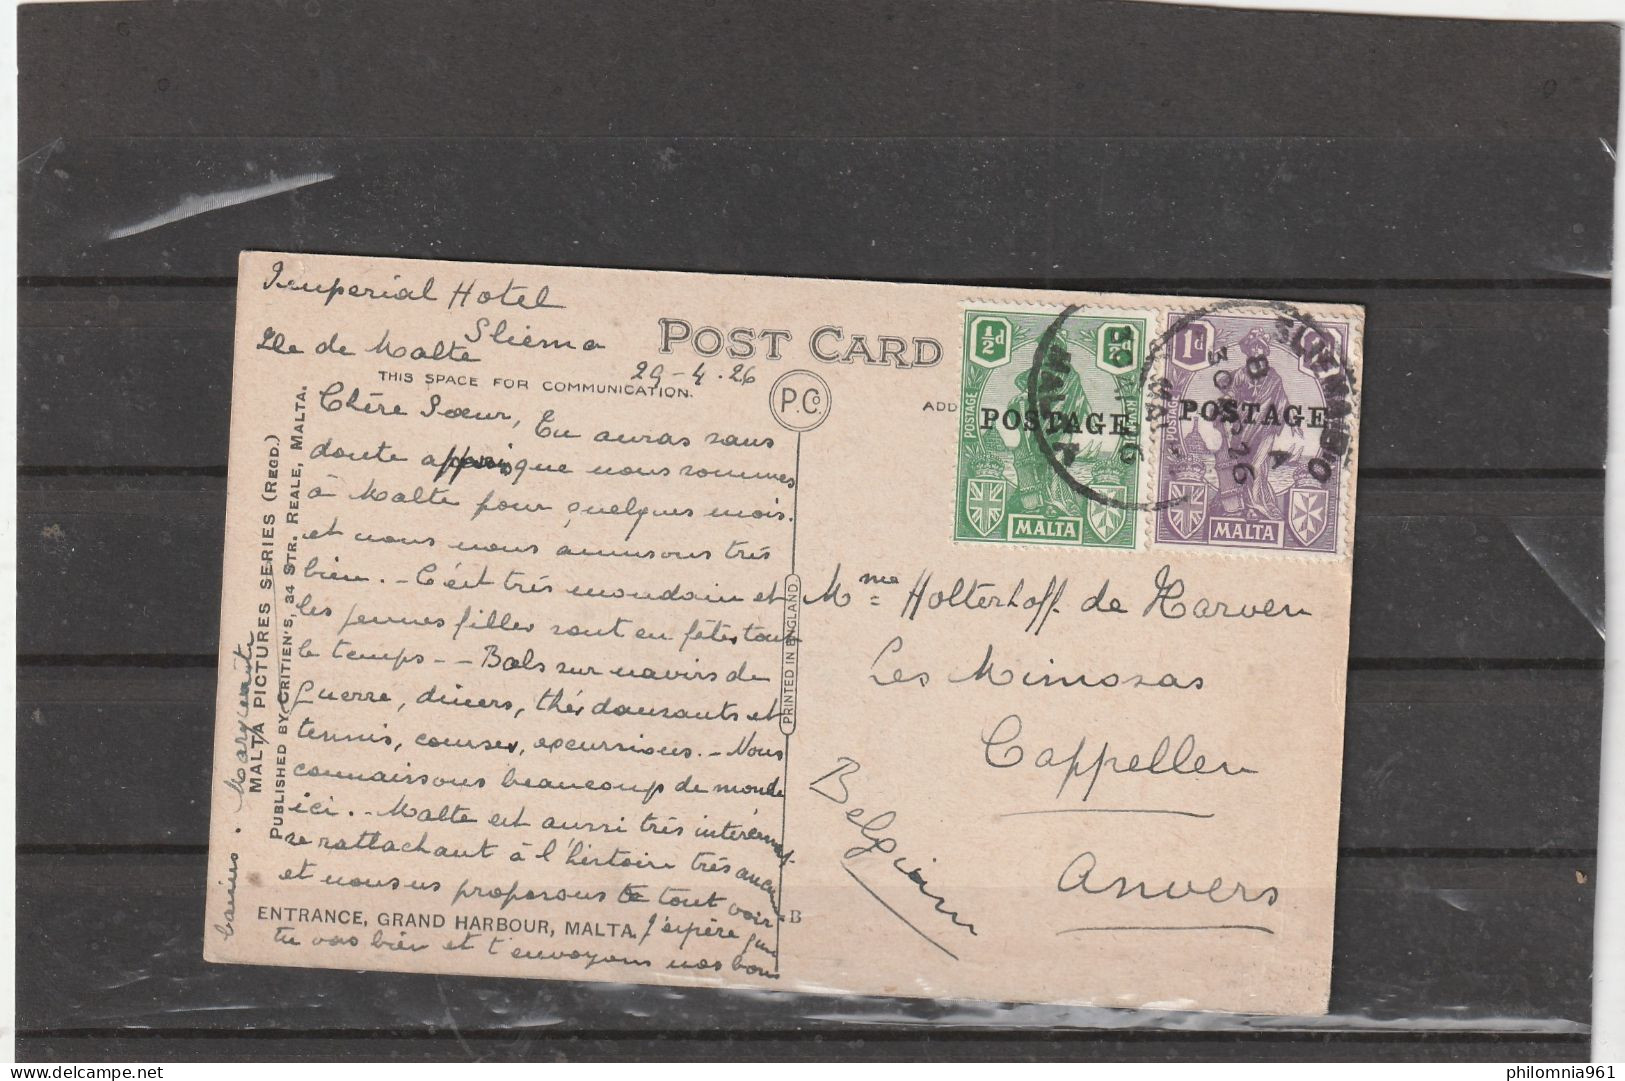 Imperial Hotel
Sliema
Ile de Malte
29-4-26
POST CARD
THIS SPACE FOR COMMUNICATION.
P.Co.
ADD
Chère Soeur, Tu auras sans
doute appris que nous sommes
à Malte pour quelques mois.
et nous nous amusons très
bien. - C'est très mondain et
les jeunes filles sont en fêtes tout
le temps -- Bals sur navires de
guerre, diners, thés dansants et
tennis, courses, excursions. - Nous
connaissons beaucoup de monde
ici. - Malte est aussi très
se rattachant à l'histoire très
et nous nous proposons de tout voir
J'espère que
tu vas bien et t'envoyons nos bons
baisers. Marguerite
MALTA PICTURES SERIES (REGD.)
PUBLISHED BY CRITIEN'S, 34 STR. REALE, MALTA.
ENTRANCE, GRAND HARBOUR, MALTA.
B
PRINTED IN ENGLAND.
½d ½d
POSTAGE
POSTAGE REVENUE
MALTA
1d
POSTAGE
POSTAGE
MALTA
MALTA
8 A
30 AP 26
Mme Holterhoff de Harven
Les Mimosas
Cappellen
Anvers
Belgium
philomnia961